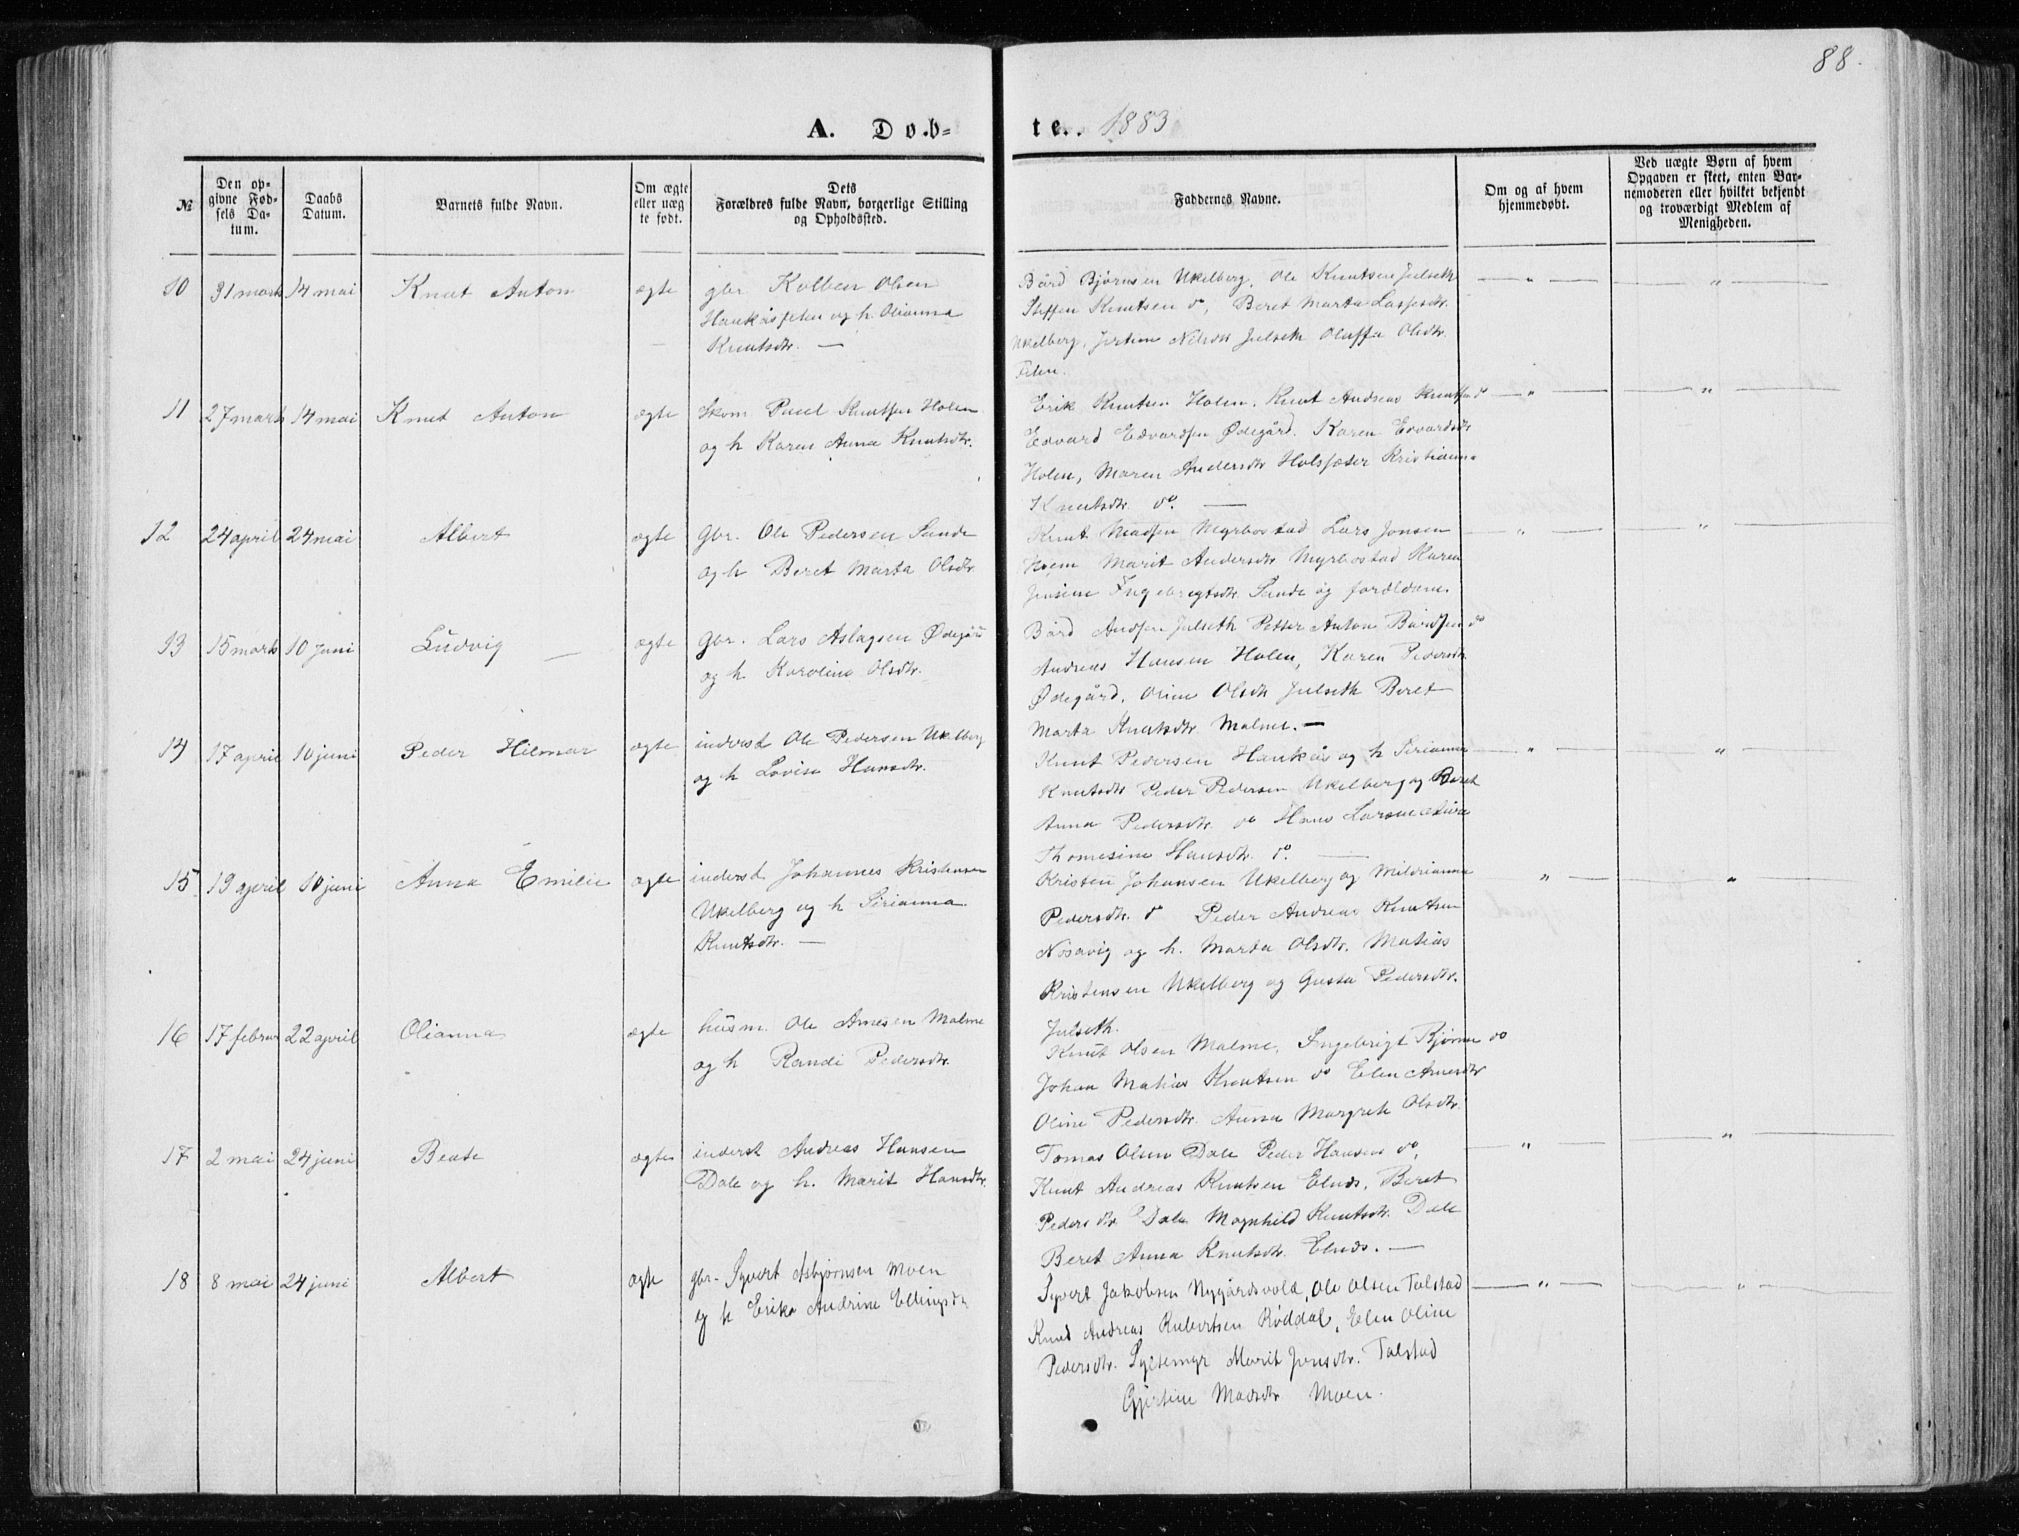 88.
A. Døb-
te. 1883
№
Den op-
givne Fød-
sels Da-
tum.
Daabs
Datum.
Barnets fulde Navn.
Om ægte
eller uæg
te født.
Dets
Forældres fulde Navn, borgerlige Stilling
og Opholdssted.
Faddernes Navne.
Om og af hvem
hjemmedøbt.
Ved uægte Børn af hvem
Opgaven er skeet, enten Bar-
nemoderen eller hvilket bekjendt
og troværdigt Medlem af
Menigheden.
10 31 marts 14 mai Knut Anton ægte gbr Kolben Olsen
Haukåsfeten og h. Olianna
Knutsdtr. —
Bård Bjørnsen Ukelberg, Ole Knutsen Julseth
Steffen Knutsen do, Beret Marta Lassesdtr.
Ukelberg, Jertine Nilsdtr Julseth Oluffa Olsdtr.
11 27 marts 14 mai Knut Anton ægte Skom Poul Knutsen Holen
og h Karen Anna Knutsdtr.
Erik Knutsen Holen. Knut Andreas Knutsen do
Edvard Edvardsen Ødegård. Karen Edvardsdtr
Holen, Maren Andersdtr Holsfæter Kristianna
Knutsdtr do. —
12 24 april 24 mai Albert ægte gbr. Ole Pedersen Sande
og h Beret Marta Olsdtr.
Knut Madsen Myrbostad Lars Jonsen
Hoem Marit Andersdtr Myrbostad Karen
Jensine Ingebrigtsdtr. Sande og forældrene.
13 15 marts 10 juni Ludvig — ægte gbr. Lars Aslagsen Ødegård
og h Karoline Olsdtr.
Bård Andsen Julseth Petter Anton Bårdsen do
Andreas Hansen Holen, Karen Pedersdtr.
Ødegård, Oline Olsdtr Julseth Beret
Marta Knutsdtr. Malme. —
14 17 april 10 juni Peder Hilmar ægte inderst Ole Pedersen Ukelberg
og h Lovise Hansdtr.
Knut Pedersen Haukås og h Sirianna
Knutsdtr Peder Pedersen Ukelberg og Beret
Anna Pedersdtr. do Hans Larsen
Thomesine Hansdtr. do. —
15 19 april 10 juni Anna Emilie ægte inderst Johannes Kristensen
Ukelberg og h Sirianna
Knutsdtr. —
Kristen Johansen Ukelberg og Mildrianna
Pedersdtr. do Peder Andreas Knutsen
Nøsavig og h. Marta Olsdtr. Matias
Kristensen Ukelberg og Gusta Pedersdtr.
Julseth.
16 17 februar 22 april Olianna ægte husm. Ole Arnesen Malme
og h Randi Pedersdtr.
Knut Olsen Malme, Ingebrigt Bjørnsen do
Johan Matias Knutsen do Elen Arnesdtr
Oline Pedersdtr. Anna Margrete Olsdtr.
17 2 mai 24 juni Beate ægte inderst Andreas Hansen
Dale og h. Marit Hansdtr.
Tomas Olsen Dale Peder Hansen do,
Knut Andreas Knutsen Elnæs, Beret
Pedersdtr Dale Magnhild Knutsdtr. Dale
Beret Anna Knutsdtr. Elnæs. —
18 8 mai 24 juni Albert ægte gbr. Syvert Asbjørnsen Moen
og h Erika Andrine Ellingsdtr
Syvert Jakobsen Nygårdsvold, Ole Olsen Talstad
Knud Andreas Rubertsen Røddal, Elen Oline
Pedersdtr. Syltemyr Marit Jonsdtr. Talstad
Gjertine Madsdtr Moen.